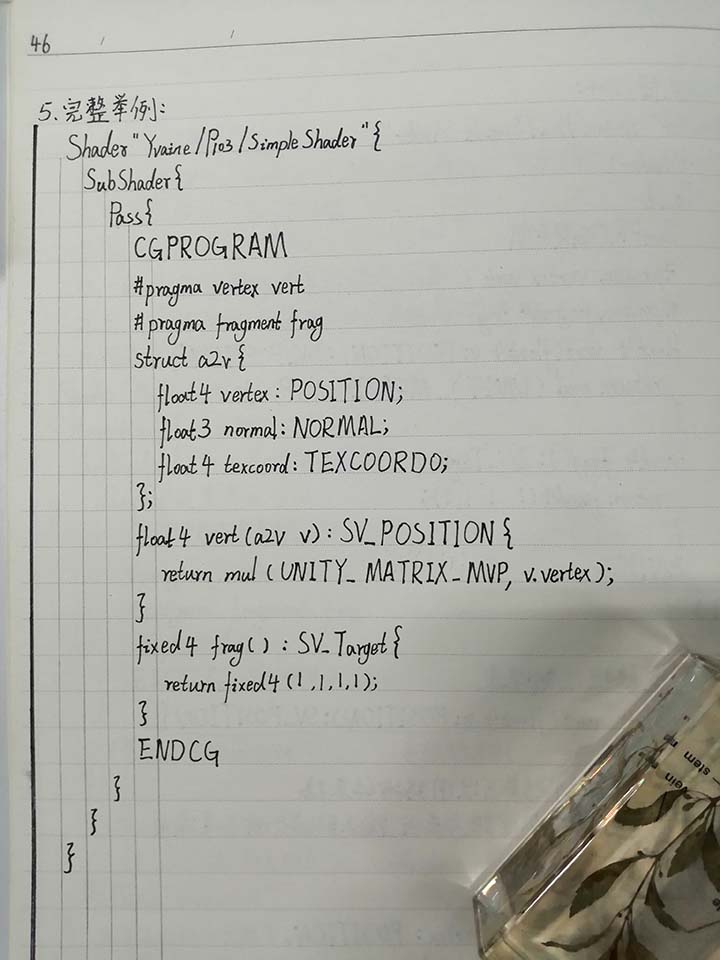 46
5.完整举例:
Shader "Yvaine/P103/SimpleShader"{
SubShader{
Pass{
CGPROGRAM
#pragma vertex vert
#pragma fragment frag
struct a2v{
float4 vertex: POSITION;
float3 normal: NORMAL;
float4 texcoord: TEXCOORD0;
};
float4 vert(a2v v): SV_POSITION{
return mul (UNITY_MATRIX_MVP, v.vertex);
}
fixed4 frag() : SV_Target{
return fixed4(1,1,1,1);
}
ENDCG
}
}
}
stem
vein